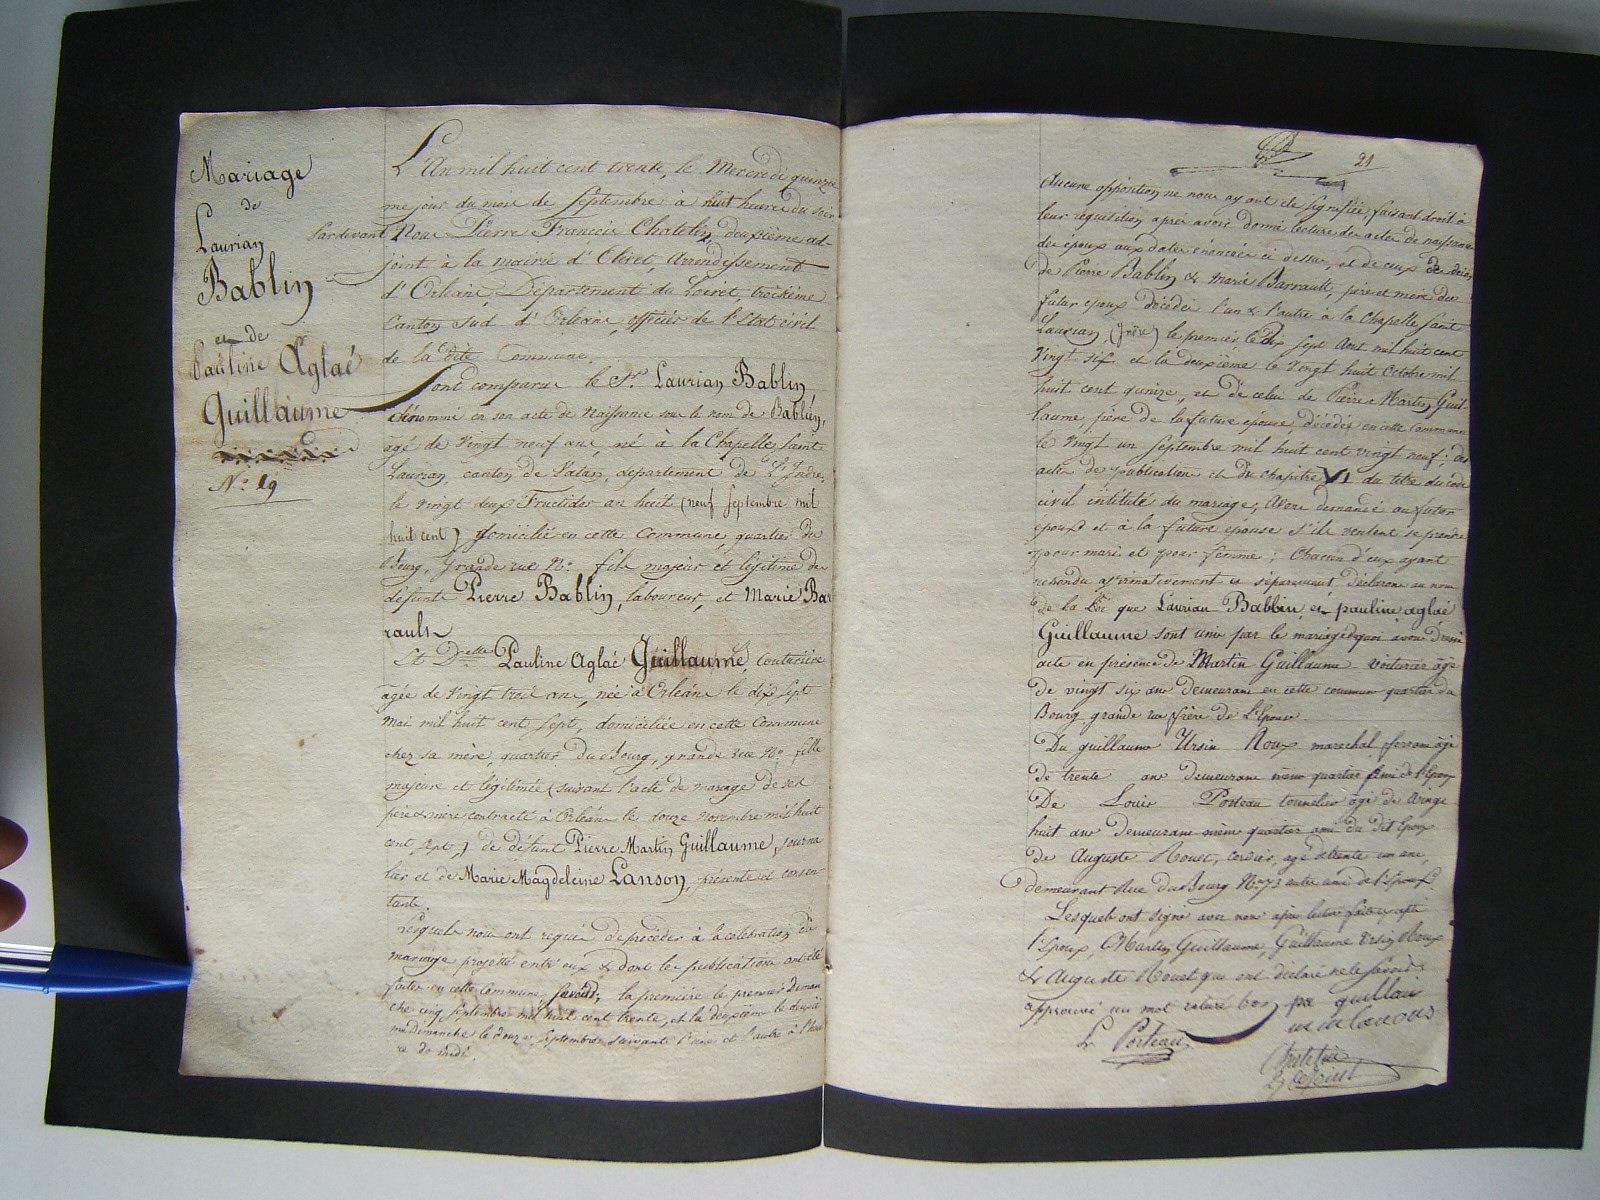 Mariage
de
Laurian
Bablin
et de
Pauline Aglaé
Guillaume
N.º 19
L'An mil huit cent trente, le Mercredi quinziè
me jour du mois de Septembre à huit heures du soir
Pardevant Nous Pierre François Chatelin, deuxième ad-
joint à la mairie d'Olivet, Arrondissement
d'Orléans, Département du Loiret, troisième
Canton sud d'Orléans officier de l'Etat civil
de la dite Commune.
Sont comparus le S.r Laurian Bablin
dénommé en son acte de Naissance sous le nom de Bablin,
agé de vingt neuf ans, né à la Chapelle Saint
Laurian, canton de Vatan, département de L'Indre,
le vingt deux Fructidor an huit (neuf septembre mil
huit cent) domicilié en cette Commune, quartier du
Bourg, Grande rue N.º fils majeur et légitime de
défunts Pierre Bablin, laboureur, et Marie Bar
rault
Et D.elle Pauline Aglaé Guillaume, couturière
âgée de vingt trois ans, née à Orléans le dix sept
mai mil huit cent sept, domiciliée en cette Commune
chez sa mère, quartier du Bourg, grande rue N.º fille
majeure et légitimée (suivant l'acte de mariage de ses
père & mère contracté à Orléans le douze novembre mil huit
cent sept,) de défunt Pierre Martin Guillaume, journa
lier et de Marie Magdeleine Lanson, présente et consen-
tante.
Lesquels nous ont requis de procéder à la célébration du
mariage projetté entr'eux & dont les publications ont été
faites en cette Commune, savoir; la première le premier Diman
che cinq septembre mil huit cent trente, et la deuxième le deuxiè
me Dimanche le douze Septembre suivant l'une et l'autre à l'heu
re de midi.
21
Aucune opposition ne nous ayant été signifiée, faisant droit à
leur réquisition après avoir donné lecture des actes de naissance
des époux aux dates énoncées ci dessus, et de ceux de décès
de Pierre Bablin & Marie Barrault, père et mère du
futur époux décédés l'un & l'autre à la Chapelle Saint
Laurian (Indre) le premier le dix sept Aout mil huit cent
vingt six et la deuxième le vingt huit Octobre mil
huit cent quinze, et de celui de Pierre Martin Guil
laume, père de la future épouse décédé en cette Commune
le vingt un septembre mil huit cent vingt neuf; des
actes de publication et du chapitre VI du titre du code
civil intitulé du mariage; Avons demandé au futur
époux et à la future épouse s'ils veulent se prendre
pour mari et pour femme; Chacun d'eux ayant
répondu affirmativement & séparément, déclarons au nom
de la Loi que Laurian Bablin et pauline aglaé
Guillaume sont unis par le mariage de quoi avons dressé
acte en présence de Martin Guillaume voiturier âgé
de vingt six ans demeurant en cette commune quartier du
Bourg grande rue frère de L'Epouse
Du guillaume Ursin Roux marechal ferrant âgé
de trente ans demeurant même quartier ami de l'Epoux
De Louis Porteau tonnelier âgé de vingt
huit ans demeurant même quartier ami du dit Epoux
de Auguste Rouet, cordier, âgé de trente un ans,
demeurant Rue du Bourg N.º 73 autre ami de l'Epoux.
Lesquels ont signé avec nous après lecture faite excepté
l'Epoux, Martin Guillaume, Guillaume Ursin Roux
& Auguste Rouet qui ont déclaré ne le savoir
approuvé un mot raturé bon
pa guillau
L. Porteau
Chatelin